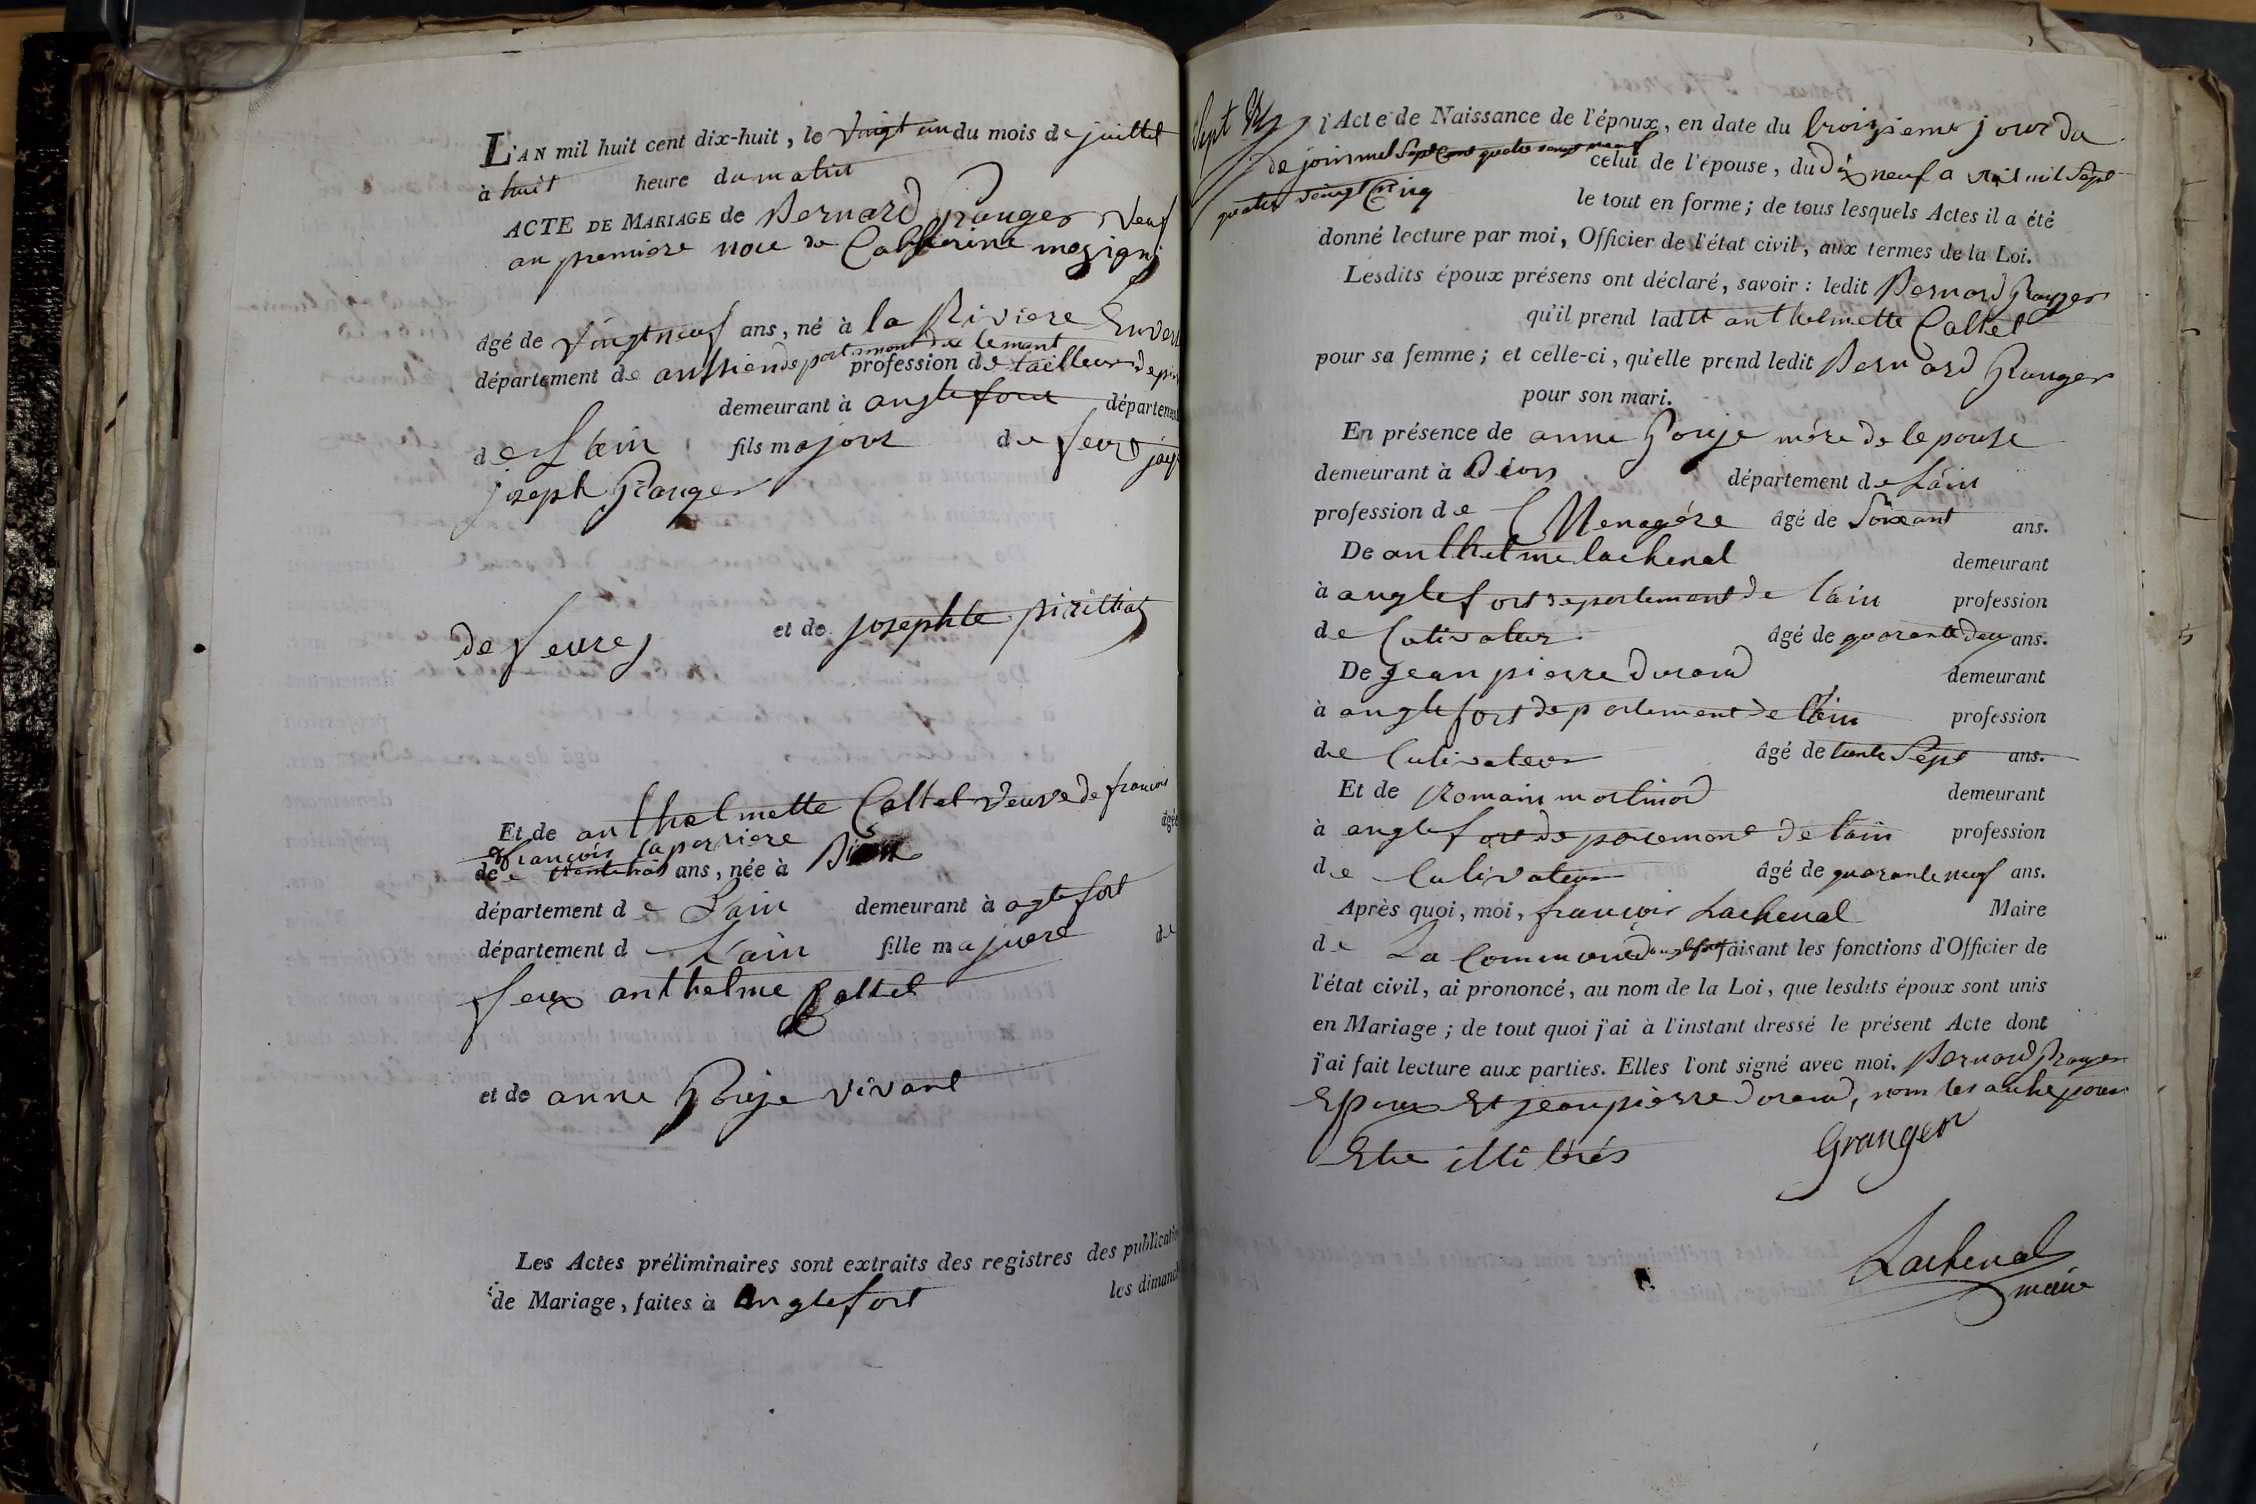 L'AN mil huit cent dix-huit, le vingt un du mois de juillet
à huit heure du matin
ACTE DE MARIAGE de Bernard Granger veuf
an premiere noce de Catherine
âgé de vingt neuf ans, né à la Riviere Enverse
département de anssien departement du lemant profession de tailleur
demeurant à anglefort département
de Lain fils majour de feux
joseph Granger
de feux et de josephte
Et de anthelmette Caltel veuve de francois
françois laperriere âgée
de trente trois ans, née à Béon
département de Lain demeurant à aglefort
département de Lain fille majuere de
feux anthelme Caltel
et de anne Gouje vivant
Les Actes préliminaires sont extraits des registres des publications
de Mariage, faites à anglefort les dimanch
l'Acte de Naissance de l'époux, en date du troizieme jour du
de join mil sept cent quatre vingt neuf celui de l'épouse, du dix neuf avril mil sept
quatre vingt cinq le tout en forme; de tous lesquels Actes il a été
donné lecture par moi, Officier de l'état civil, aux termes de la Loi.
Lesdits époux présens ont déclaré, savoir: ledit Bernard Granger
qu'il prend ladit anthelmette Caltel
pour sa femme; et celle-ci, qu'elle prend ledit Bernard Granger
pour son mari.
En présence de anne Gouje mére de lepouse
demeurant à Béon département de Lain
profession de Menagére âgé de soixant ans.
De anthelme lachenal demeurant
à anglefort departement de lain profession
de Cutivateur âgé de quarante deux ans.
De Jean pierre durand demeurant
à anglefort departement de lain profession
de Cutivateur âgé de trente sept ans.
Et de Romain martinod demeurant
à anglefort departement de lain profession
de Cultivateur âgé de quarante neuf ans.
Après quoi, moi, françois Lachenal Maire
de La Commune danglefort faisant les fonctions d'Officier de
l'état civil, ai prononcé, au nom de la Loi, que lesdits époux sont unis
en Mariage; de tout quoi j'ai à l'instant dressé le présent Acte dont
j'ai fait lecture aux parties. Elles l'ont signé avec moi. Bernard Granger
Epoux Et jean pierre durand, non les autre pour
Etre illitérés
Granger
Lachenal
maire